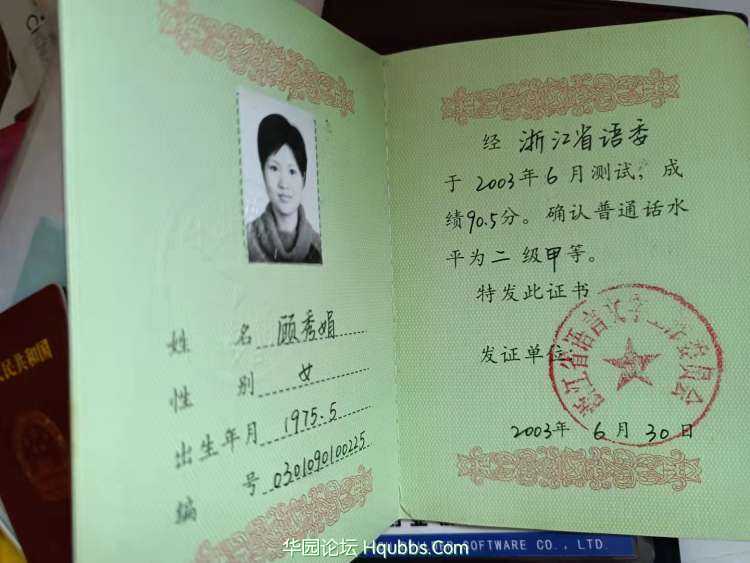 姓 名 顾秀娟
性 别 女
出生年月 1975.5
编 号 0301090100225
经 浙江省语委
于 2003年 6 月测试，成
绩90.5分。确认普通话水
平为二 级甲等。
特发此证书
发证单位：
浙江省语言文字工作委员会
2003年 6 月 30 日
人民共和国
SOFTWARE CO., LTD.
华园论坛 Hqubbs.Com